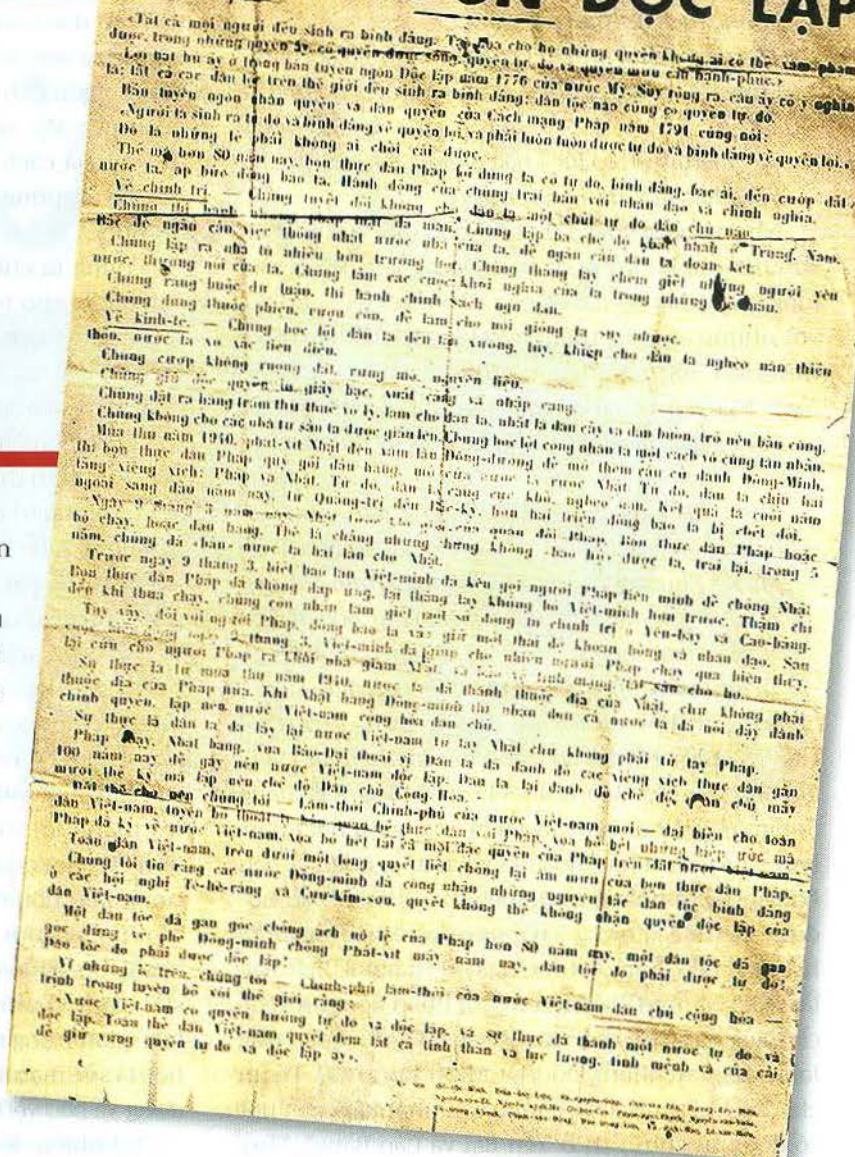 ỘC LẬP
«Tất cả mọi người đều sinh ra bình đẳng. Tạo hóa cho họ những quyền không ai có thể xâm phạm
được, trong những quyền ấy, có quyền được sống, quyền tự do và quyền mưu cầu hạnh-phúc.»
Lời bất hủ ấy ở trong bản tuyên ngôn Độc lập năm 1776 của nước Mỹ. Suy rộng ra, câu ấy có ý nghĩa
là: tất cả các dân tộc trên thế giới đều sinh ra bình đẳng; dân tộc nào cũng có quyền tự do.
Bản tuyên ngôn nhân quyền và dân quyền của Cách mạng Pháp năm 1791 cũng nói:
«Người ta sinh ra tự do và bình đẳng về quyền lợi, và phải luôn luôn được tự do và bình đẳng về quyền lợi.»
Đó là những lẽ phải không ai chối cãi được.
Thế mà hơn 80 năm nay, bọn thực dân Pháp lợi dụng lá cờ tự do, bình đẳng, bác ái, đến cướp đất
nước ta, áp bức đồng bào ta. Hành động của chúng trái hẳn với nhân đạo và chính nghĩa.
Về chính trị. — Chúng tuyệt đối không cho dân ta một chút tự do dân chủ nào.
Chúng thi hành những pháp luật dã man. Chúng lập ba chế độ khác nhau ở Trung, Nam,
Bắc để ngăn cản việc thống nhất nước nhà của ta, để ngăn cản dân ta đoàn kết.
Chúng lập ra nhà tù nhiều hơn trường học. Chúng thẳng tay chém giết những người yêu
nước, thương nòi của ta. Chúng tắm các cuộc khởi nghĩa của ta trong những bể máu.
Chúng ràng buộc dư luận, thi hành chính sách ngu dân.
Chúng dùng thuốc phiện, rượu cồn, để làm cho nòi giống ta suy nhược.
Về kinh-tế. — Chúng bóc lột dân ta đến tận xương, tủy, khiến cho dân ta nghèo nàn thiếu
thốn, nước ta xơ xác tiêu điều.
Chúng cướp không ruộng đất, rừng mỏ, nguyên liệu.
Chúng giữ độc quyền in giấy bạc, xuất cảng và nhập cảng.
Chúng đặt ra hàng trăm thứ thuế vô lý, làm cho dân ta, nhất là dân cày và dân buôn, trở nên bần cùng.
Chúng không cho các nhà tư sản ta được giàu lên. Chúng bóc lột công nhân ta một cách vô cùng tàn nhẫn.
Mùa thu năm 1940, phát-xít Nhật đến xâm lăng Đông-dương để mở thêm căn cứ đánh Đồng-Minh,
thì bọn thực dân Pháp quỳ gối đầu hàng, mở cửa nước ta rước Nhật. Từ đó, dân ta chịu hai
tầng xiềng xích: Pháp và Nhật. Từ đó, dân ta càng cực khổ, nghèo nàn. Kết quả là cuối năm
ngoái sang đầu năm nay, từ Quảng-trị đến Bắc-kỳ, hơn hai triệu đồng bào ta bị chết đói.
Ngày 9 tháng 3 năm nay, Nhật tước khí giới của quân đội Pháp. Bọn thực dân Pháp hoặc
bỏ chạy, hoặc đầu hàng. Thế là chẳng những chúng không «bảo hộ» được ta, trái lại, trong 5
năm, chúng đã «bán» nước ta hai lần cho Nhật.
Trước ngày 9 tháng 3, biết bao lần Việt-minh đã kêu gọi người Pháp liên minh để chống Nhật.
Bọn thực dân Pháp đã không đáp ứng, lại thẳng tay khủng bố Việt-minh hơn trước. Thậm chí
đến khi thua chạy, chúng còn nhẫn tâm giết một số đông tù chính trị ở Yên-báy và Cao-bằng.
Tuy vậy, đối với người Pháp, đồng bào ta vẫn giữ một thái độ khoan hồng và nhân đạo. Sau
cuộc biến động ngày 9 tháng 3, Việt-minh đã giúp cho nhiều người Pháp chạy qua biên thùy,
lại cứu cho người Pháp ra khỏi nhà giam Nhật, và bảo vệ tính mạng, tài sản cho họ.
Sự thực là từ mùa thu năm 1940, nước ta đã thành thuộc địa của Nhật, chứ không phải
thuộc địa của Pháp nữa. Khi Nhật hàng Đồng-minh thì nhân dân cả nước ta đã nổi dậy dành
chính quyền, lập nên nước Việt-nam cộng hòa dân chủ.
Sự thực là dân ta đã lấy lại nước Việt-nam từ tay Nhật chứ không phải từ tay Pháp.
Pháp chạy, Nhật hàng, vua Bảo-Đại thoái vị. Dân ta đã đánh đổ các xiềng xích thực dân gần
100 năm nay để gây nên nước Việt-nam độc lập. Dân ta lại đánh đổ chế độ quân chủ mấy
mươi thế kỷ mà lập nên chế độ Dân chủ Cộng Hòa.
Bởi thế cho nên chúng tôi — Lâm-thời Chính-phủ của nước Việt-nam mới — đại biểu cho toàn
dân Việt-nam, tuyên bố thoát ly hẳn quan hệ thực dân với Pháp, xóa bỏ hết những hiệp ước mà
Pháp đã ký về nước Việt-nam, xóa bỏ hết tất cả mọi đặc quyền của Pháp trên đất nước Việt-nam.
Toàn dân Việt-nam, trên dưới một lòng quyết liệt chống lại âm mưu của bọn thực dân Pháp.
Chúng tôi tin rằng các nước Đồng-minh đã công nhận những nguyên tắc dân tộc bình đẳng
ở các hội nghị Tê-hê-răng và Cựu-kim-sơn, quyết không thể không nhận quyền độc lập của
dân Việt-nam.
Một dân tộc đã gan góc chống ách nô lệ của Pháp hơn 80 năm nay, một dân tộc đã gan
góc đứng về phe Đồng-minh chống Phát-xít mấy năm nay, dân tộc đó phải được tự do;
Dân tộc đó phải được độc lập!
Vì những lẽ trên, chúng tôi — Chính-phủ lâm-thời của nước Việt-nam dân chủ cộng hòa —
trịnh trọng tuyên bố với thế giới rằng:
«Nước Việt-nam có quyền hưởng tự do và độc lập, và sự thực đã thành một nước tự do và
độc lập. Toàn thể dân Việt-nam quyết đem tất cả tinh thần và lực lượng, tính mệnh và của cải
để giữ vững quyền tự do và độc lập ấy».